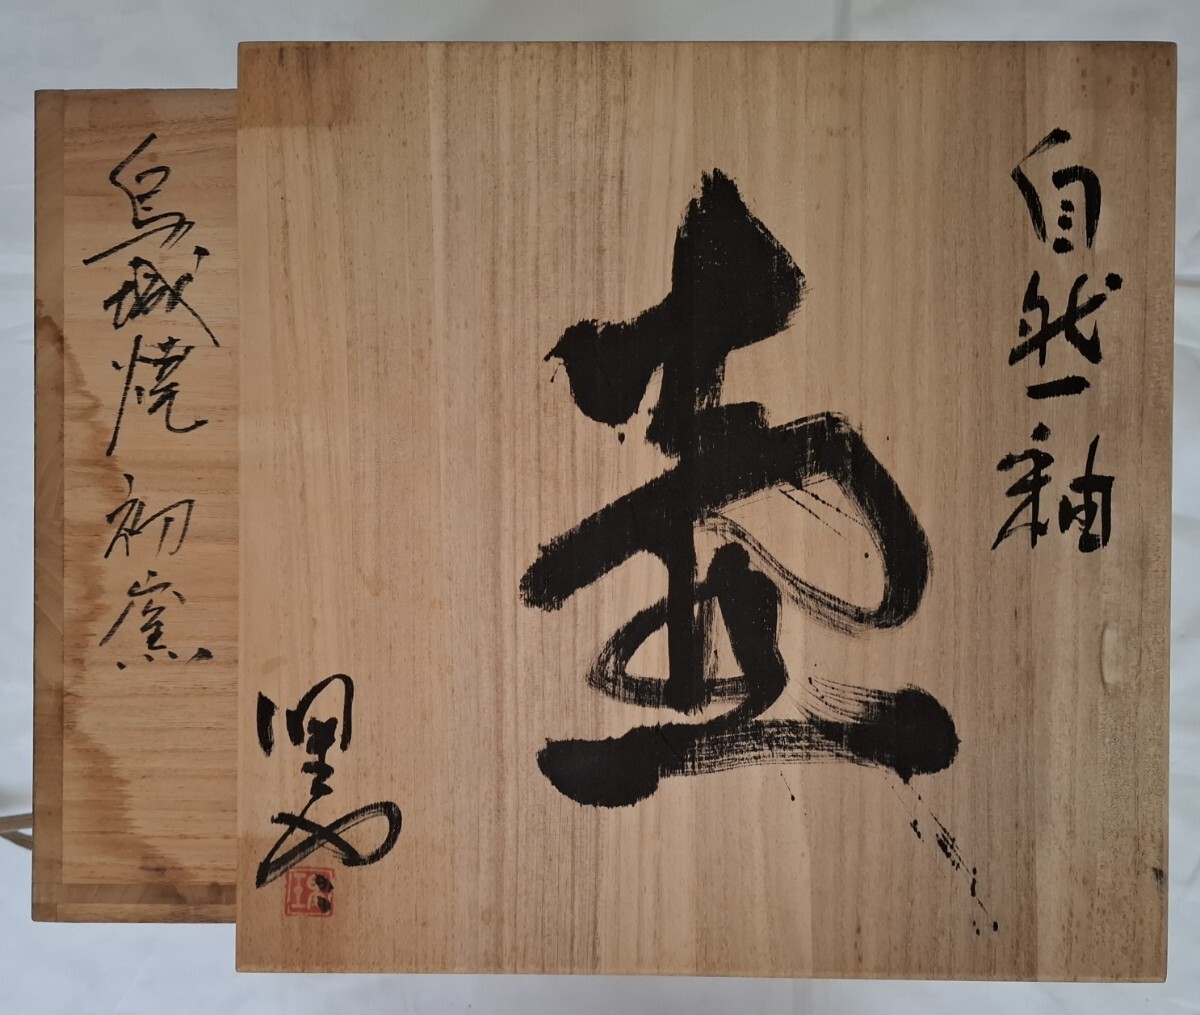 自然釉
壺
烏城焼 初窯